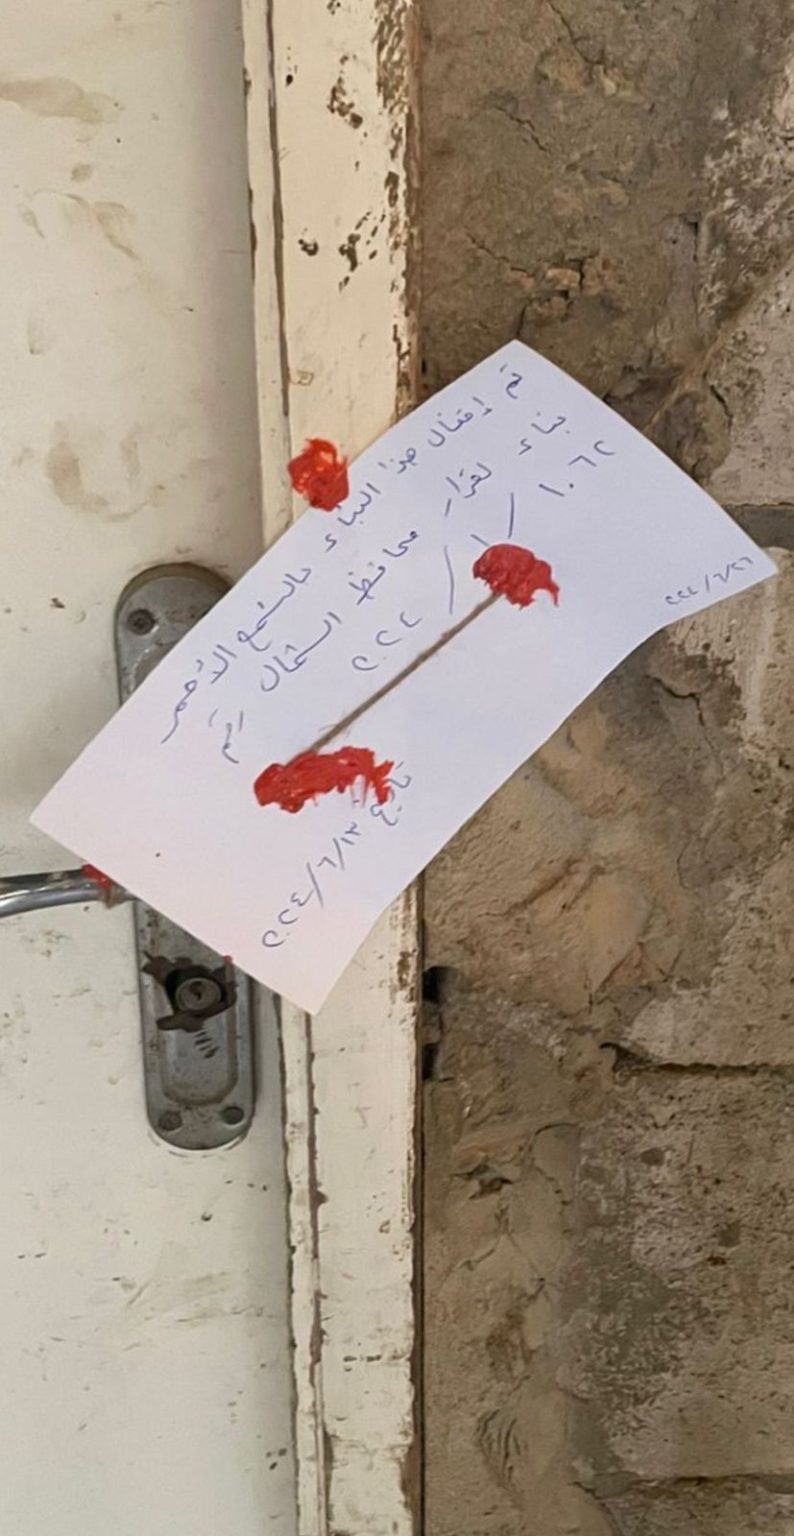 تمّ إقفال هذا البناء بالشمع الأحمر
بناء لقرار محافظ الشمال رقم
١٠٦٢ / ١ / ٢٠٢٤
تاريخ ١٣/٦/٢٠٢٤